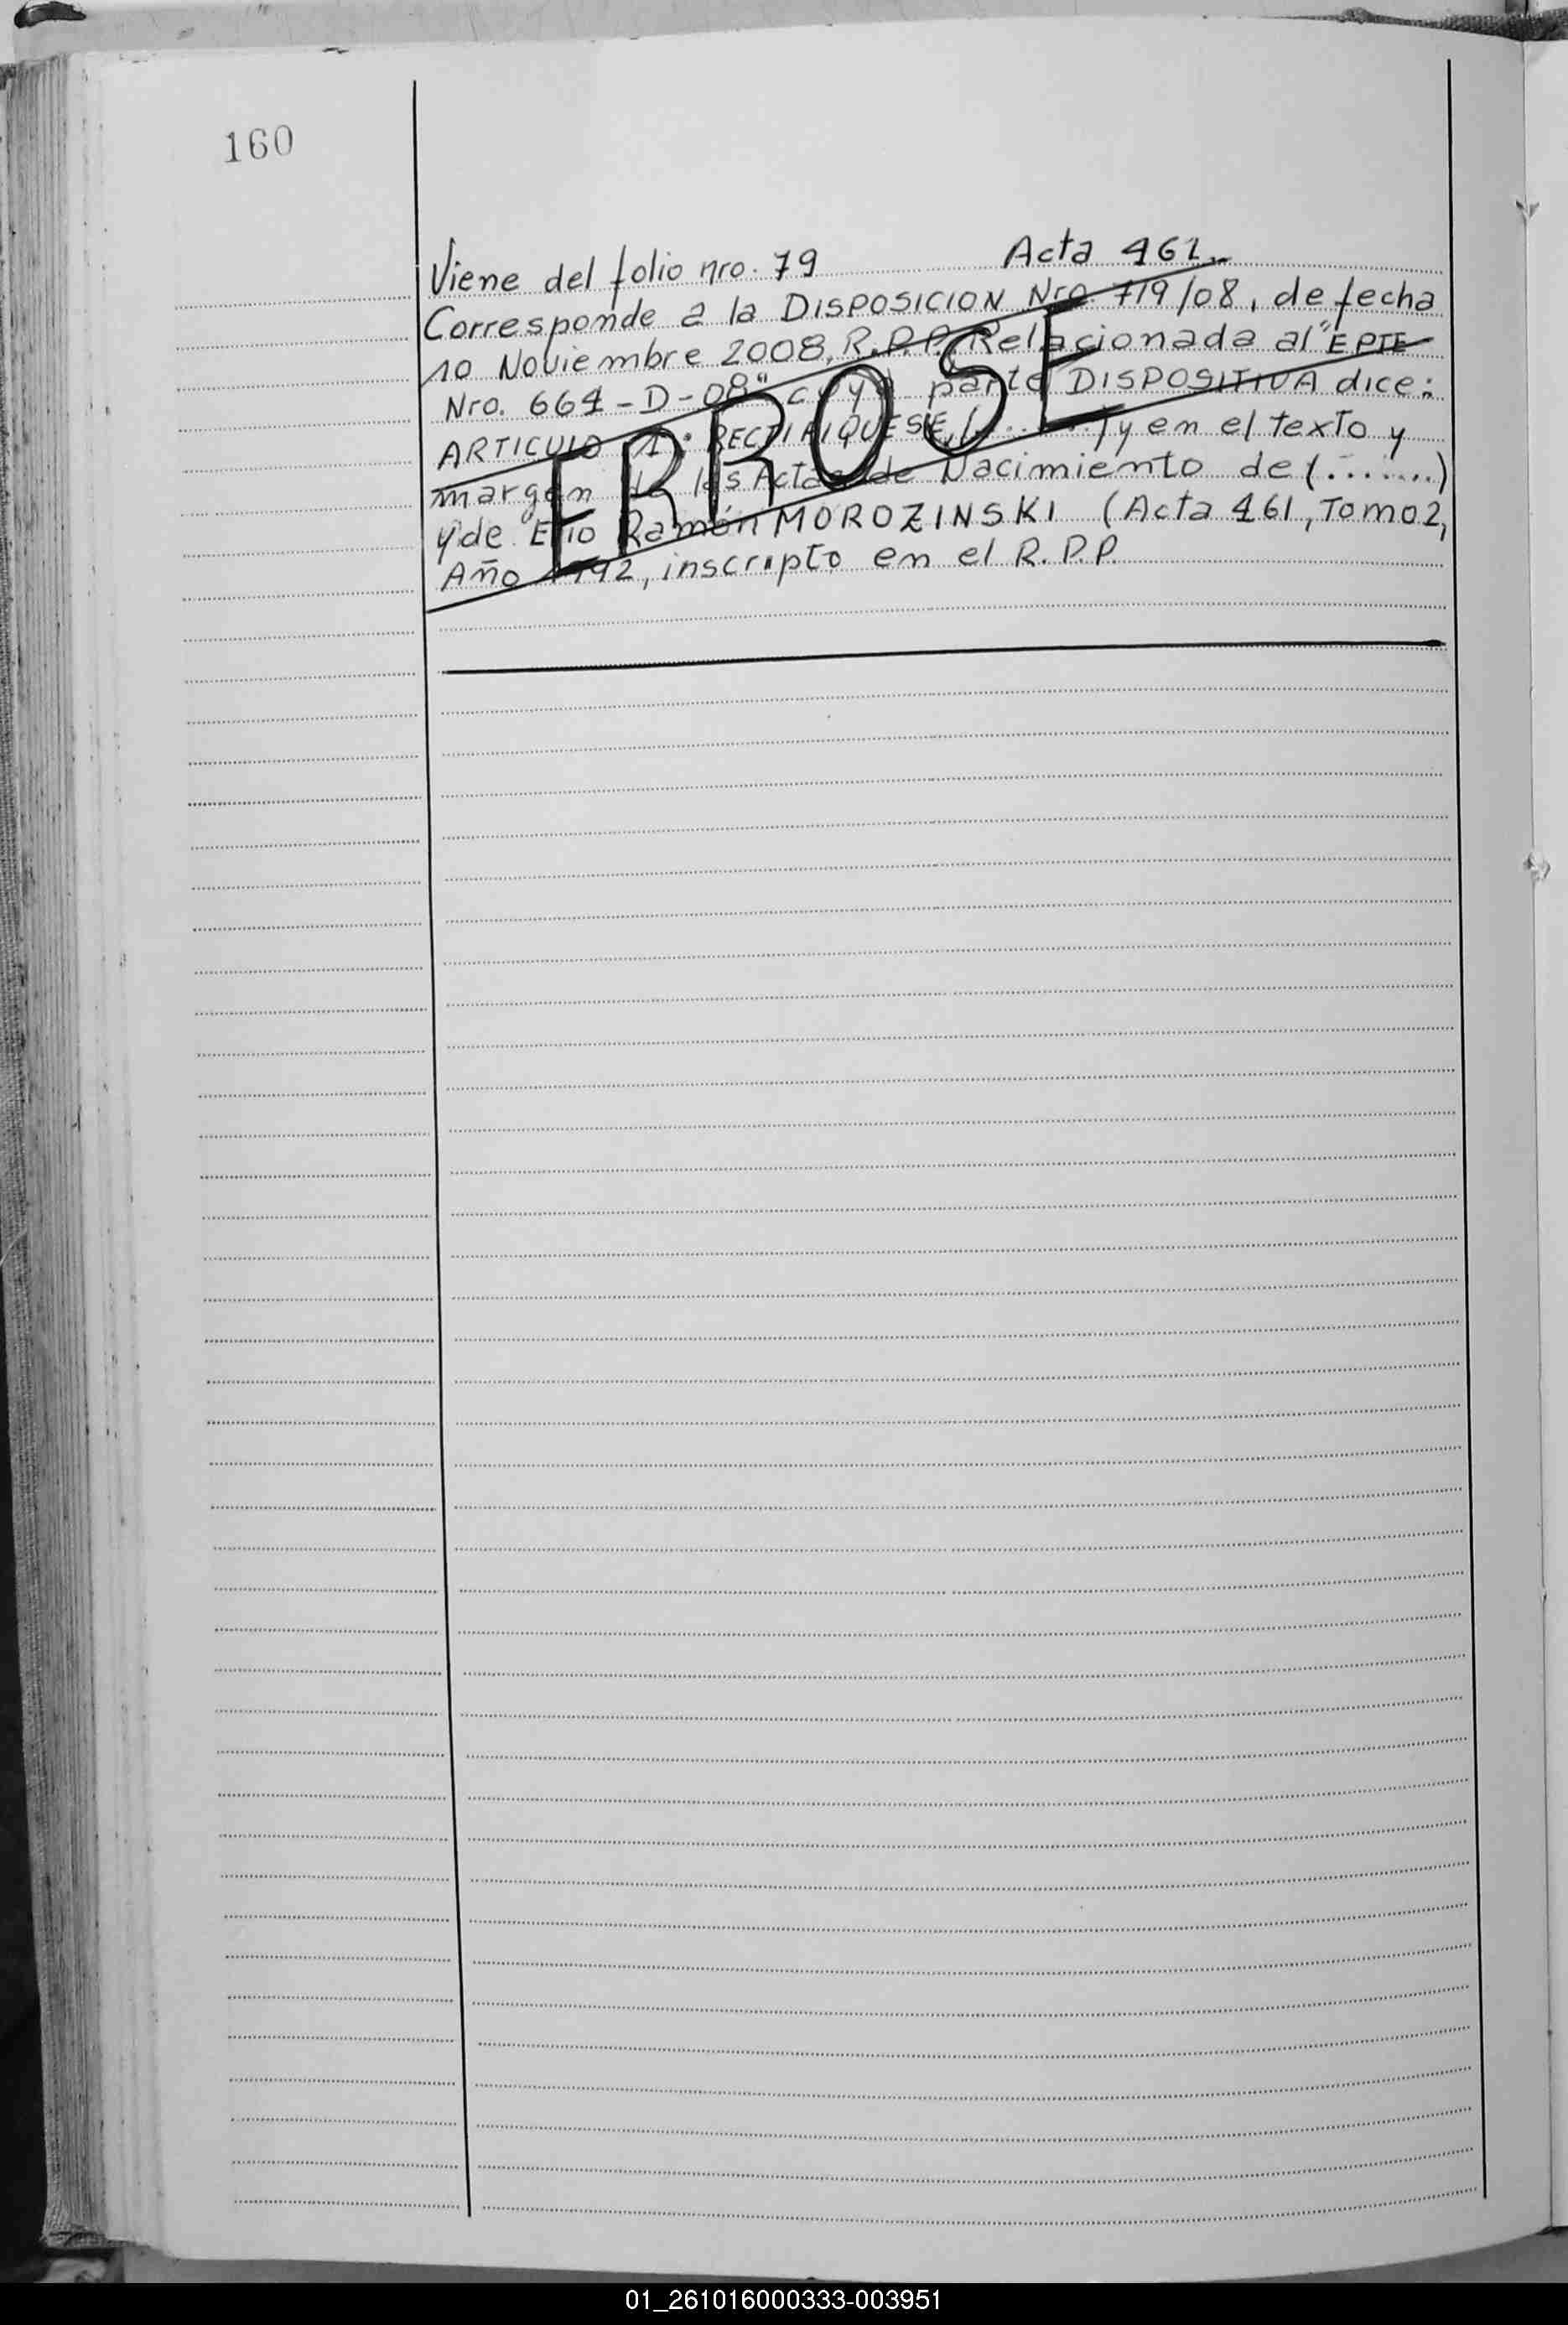 160
Viene del folio nro. 79 Acta 461.
Corresponde a la DISPOSICION Nro. 719/08, de fecha
10 Noviembre 2008, R.P.P. Relacionada al "EPTE
Nro. 664-D-08" cuya parte DISPOSITIVA dice:
ARTICULO 1º: RECTIFIQUESE, (.......) y en el texto y
margen de las Actas de Nacimiento de (.......)
y de Ramón MOROZINSKI (Acta 461, Tomo 2,
Año 1992, inscripto en el R.P.P.
ERROSE
01_261016000333-003951